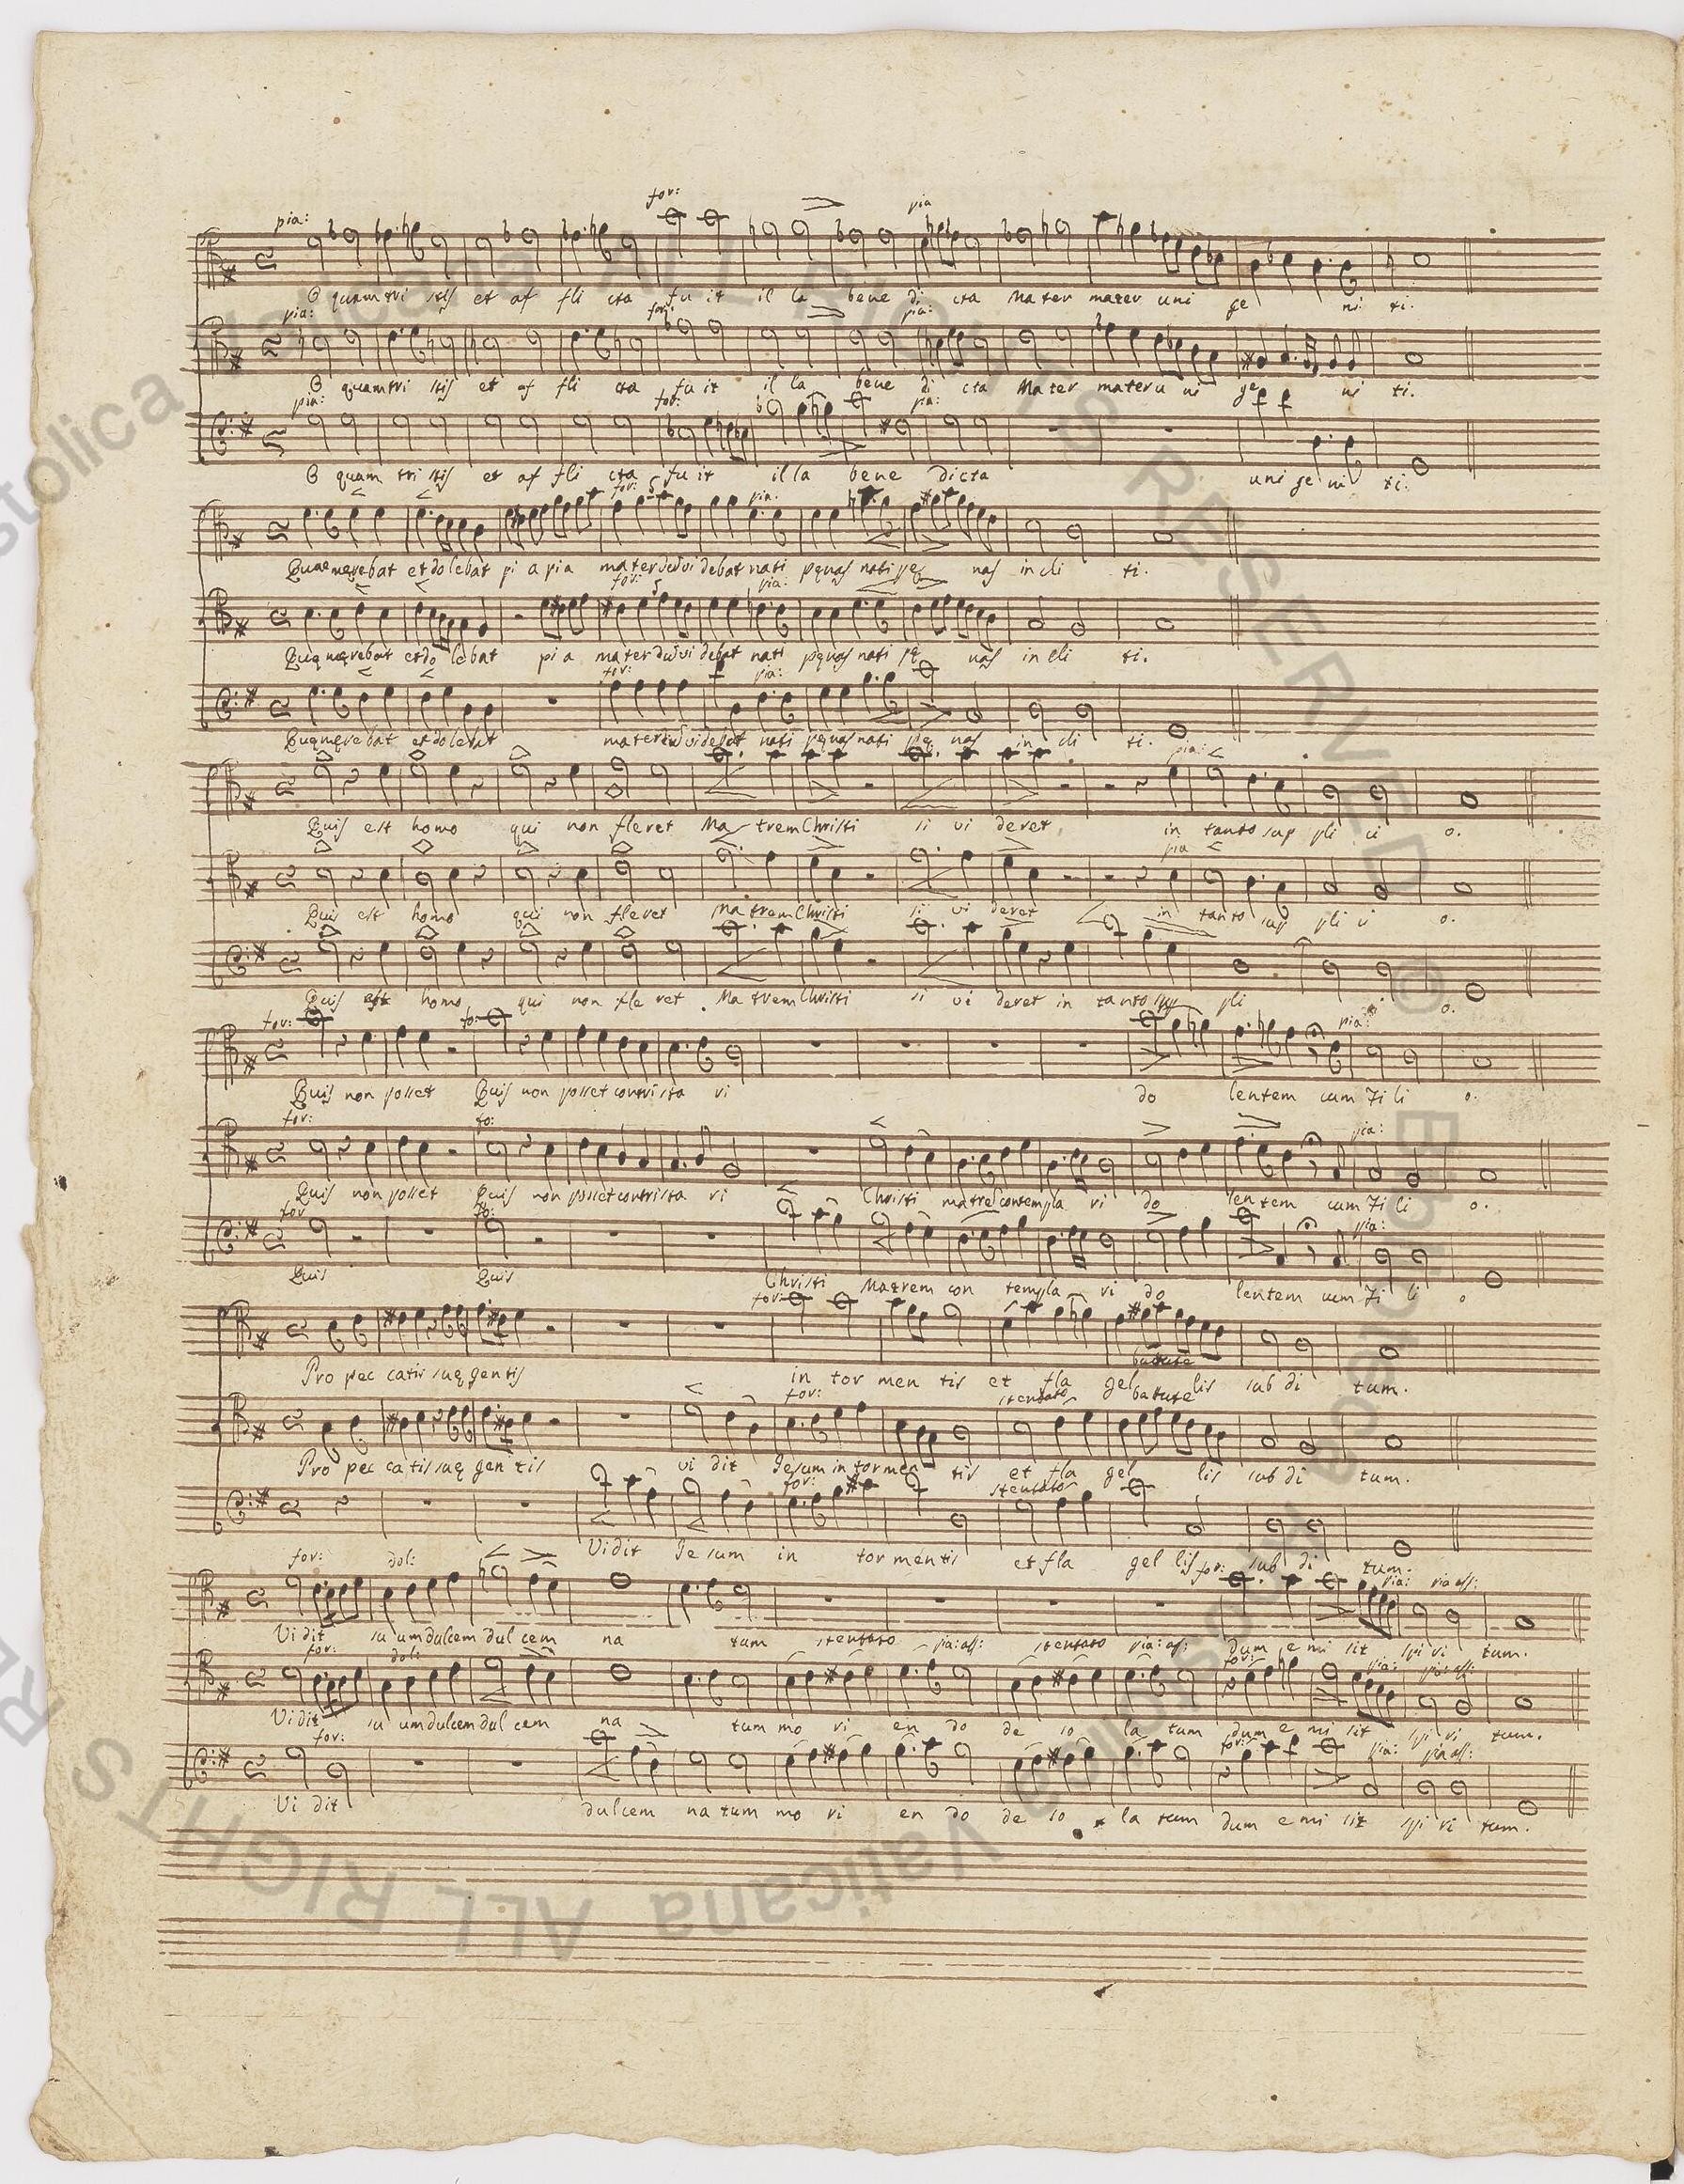 for:
pia: pia
O quam tri stis et af fli cta fu it il la bene di cta Mater mater uni ge ni ti.
pia: for: pia:
O quam tri stis et af fli cta fu it il la bene di cta Mater mater u ni ge ni ti.
pia: for: pia:
O quam tri stis et af fli cta fu it il la bene dicta uni ge ni ti.
for: pia:
Quae merebat et dolebat pi a pia mater dū videbat nati penas nati pe nas in cli ti.
for: pia:
Quę męrebat et do lebat pi a mater dū videbat nati pęnas nati pę nas in cli ti.
for: pia:
Quę męrebat et dolebat mater dū videbat nati pęnas nati pę nas in cli ti.
pia:
Quis est homo qui non fleret Ma trem Christi si vi deret in tanto sup pli ci o.
pia
Quis est homo qui non fleret Ma trem Christi si vi deret in tanto sup pli ci o.
Quis est homo qui non fle ret Ma trem Christi si vi deret in tanto sup pli o.
for: fo: pia:
Quis non posset Quis non posset contrista vi do lentem cum Fi li o.
for: fo: pia:
Quis non posset Quis non posset contrista vi Christi matrē contempla ri do len tem cum Fi li o.
for fo: pia:
Quis Quis Christi Matrem con templa ri do lentem cum Fi li o
for:
Pro pec catis suę gentis in tor men tis et fla gel lis sub di tum.
for: stentato battute
Pro pec ca tis suę gen tis vi dit Iesum in tormen tis et fla gel lis sub di tum.
for: stentato
Vidit Ie sum in tor mentis et fla gel lis sub di tum.
for: dol: for: pia: pia ass:
Vi dit su um dulcem dul cem na tum stentato pia: ass: stentato pia: ass: dum e mi sit spi ri tum.
for: dol: for: pia: pia ass:
Vi dit su um dulcem dul cem na tum mo ri en do de so la tum dum e mi sit spi ri tum.
for: for: pia: pia ass:
Vi dit dulcem na tum mo ri en do de so la tum dum e mi sit spi ri tum.
Vaticana ALL RIGHTS RESERVED ©